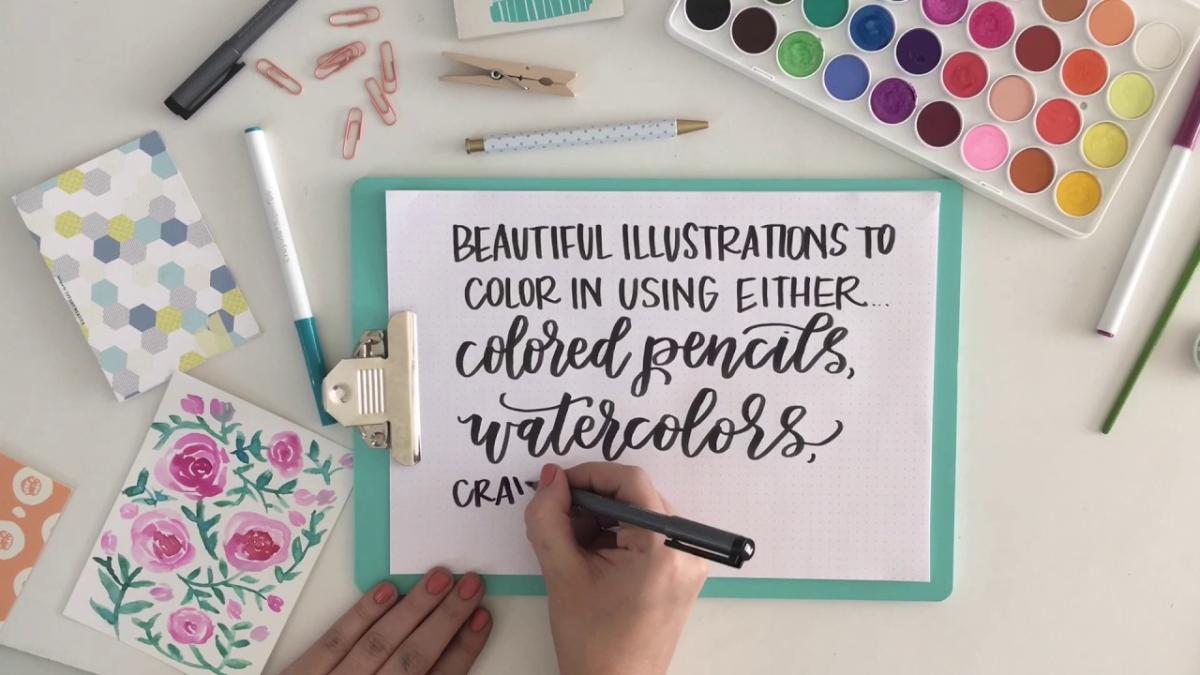 BEAUTIFUL ILLUSTRATIONS TO
COLOR IN USING EITHER...
colored pencils,
watercolors,
CRA